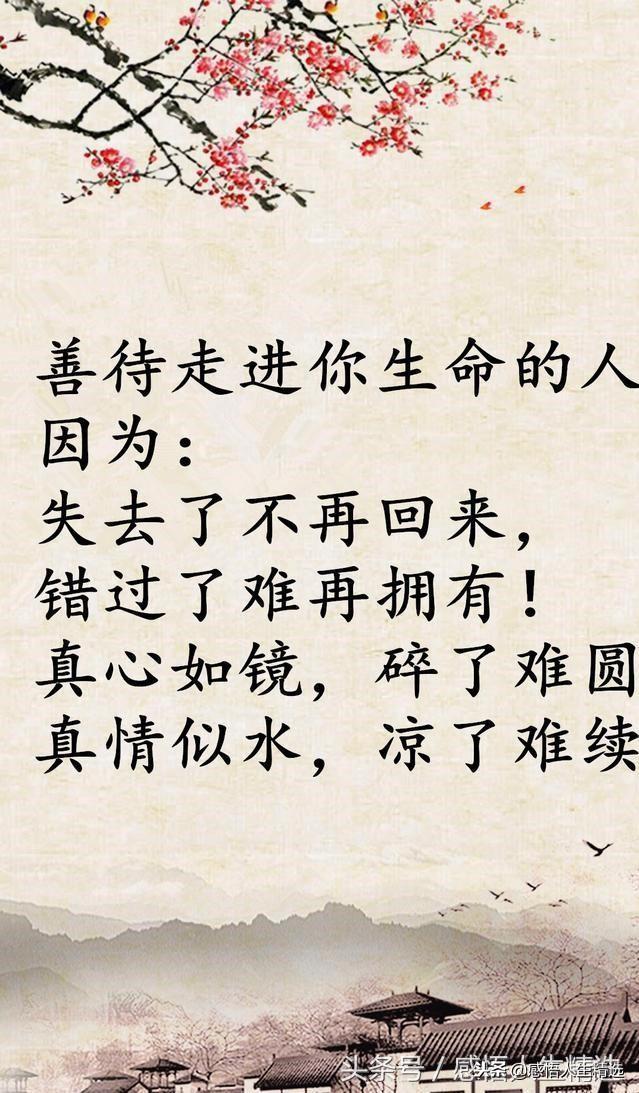 善待走进你生命的人
因为：
失去了不再回来，
错过了难再拥有！
真心如镜，碎了难圆
真情似水，凉了难续
头条号／感悟人生精选
头条 @感悟人生精选